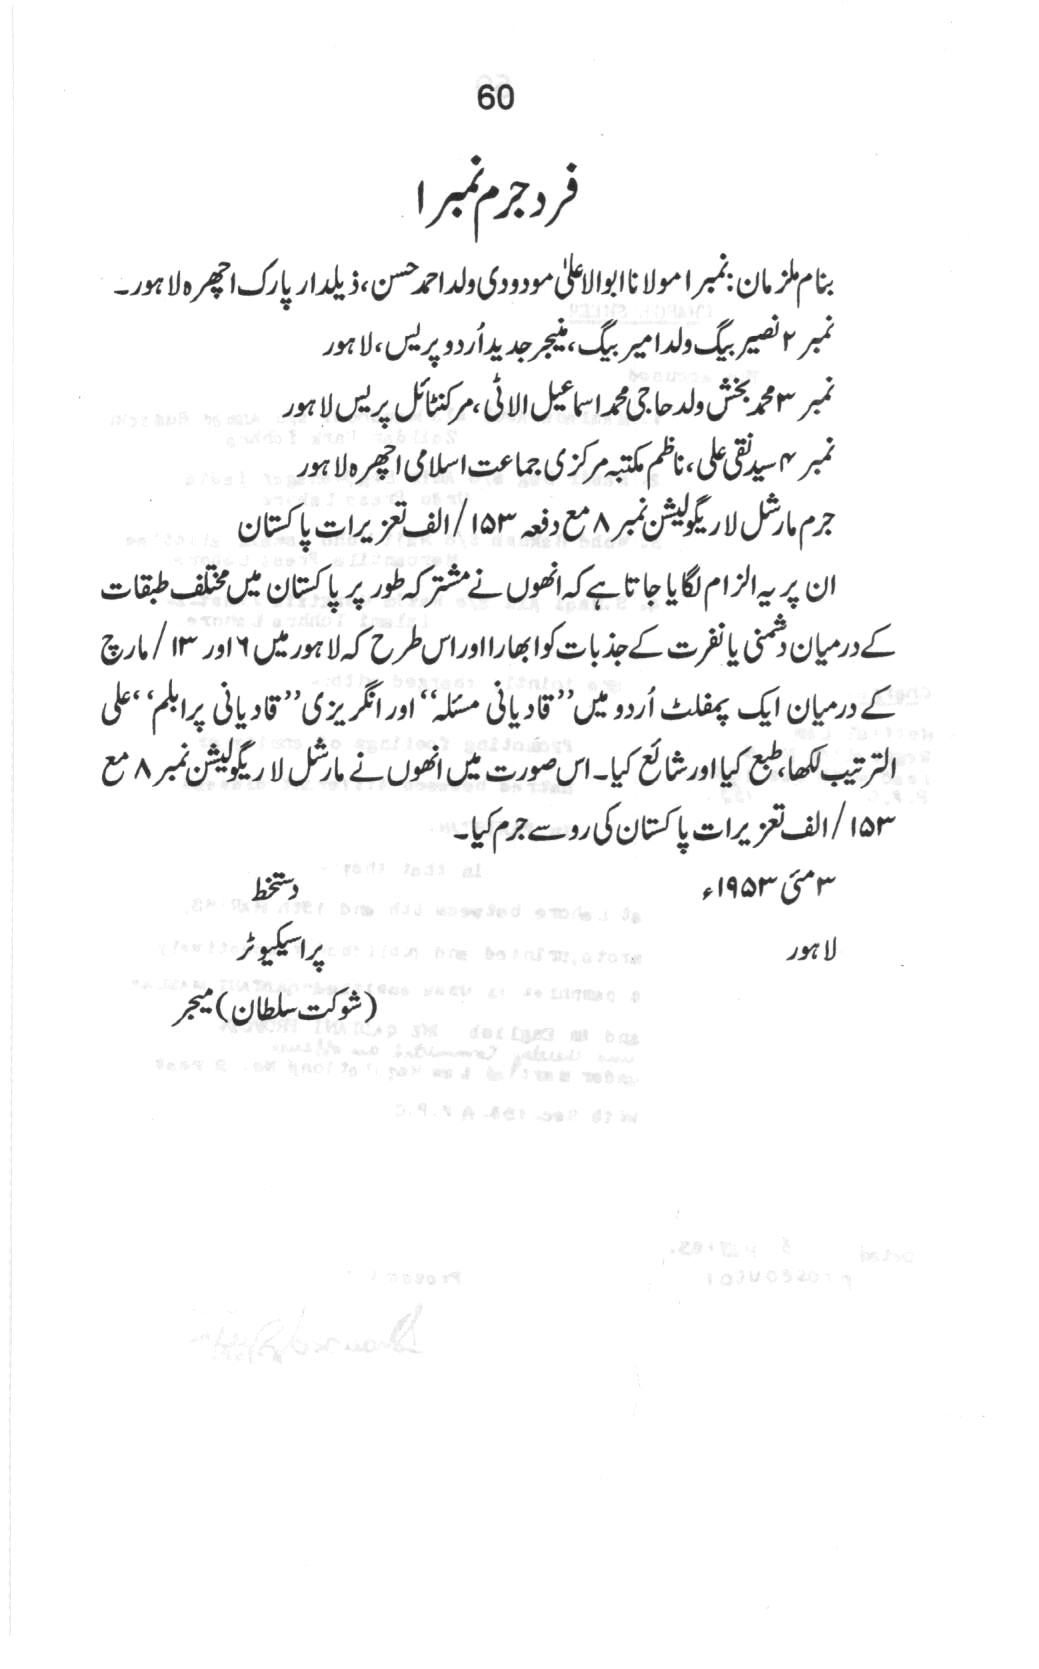 60
فرد جرم نمبر ۱
بنام ملزمان: نمبر ۱ مولانا ابوالاعلیٰ مودودی ولد احمد حسن، ذیلدار پارک اچھرہ لاہور۔
نمبر ۲ نصیر بیگ ولد امیر بیگ، منیجر جدید اُردو پریس، لاہور
نمبر ۳ محمد بخش ولد حاجی محمد اسماعیل الاٹی، مرکنٹائل پریس لاہور
نمبر ۴ سید نقی علی، ناظم مکتبہ مرکزی جماعت اسلامی اچھرہ لاہور
جرم مارشل لا ریگولیشن نمبر ۸ مع دفعہ ۱۵۳/الف تعزیرات پاکستان
ان پر یہ الزام لگایا جاتا ہے کہ انھوں نے مشترکہ طور پر پاکستان میں مختلف طبقات
کے درمیان دشمنی یا نفرت کے جذبات کو ابھارا اور اس طرح کہ لاہور میں ۶ اور ۱۳/مارچ
کے درمیان ایک پمفلٹ اُردو میں ’’قادیانی مسئلہ‘‘ اور انگریزی ’’قادیانی پرابلم‘‘ علی
الترتیب لکھا، طبع کیا اور شائع کیا۔ اس صورت میں انھوں نے مارشل لا ریگولیشن نمبر ۸ مع
۱۵۳/الف تعزیرات پاکستان کی رو سے جرم کیا۔
۳ مئی ۱۹۵۳ء دستخط
لاہور پراسیکیوٹر
(شوکت سلطان) میجر